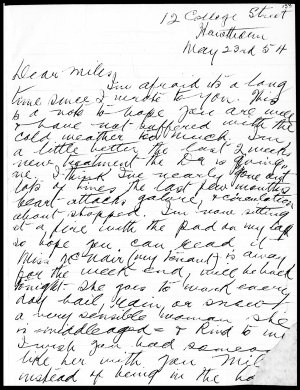 12 College Street
Hawthorn
May 23rd 54
Dear Miles,
I'm afraid it's a long
time since I wrote to you. This
is a note to hope you are well
& have not suffered with the
cold weather too much. I am
a little better the last 2 weeks
new treatment the Dr is giving
me. I think I've nearly gone out
lots of times the last few months
heart attacks galore, & circulation
about stopped. I'm now sitting
at a fire with the pad on my lap
so hope you can read it
Miss McNair (my tenant) is away
for the week end, will be back
tonight. She goes to work every
day hail, rain, or snow
a very sensible woman. She
is middleaged & kind to me
I wish you had someone
like her with you Miles
instead of being in the